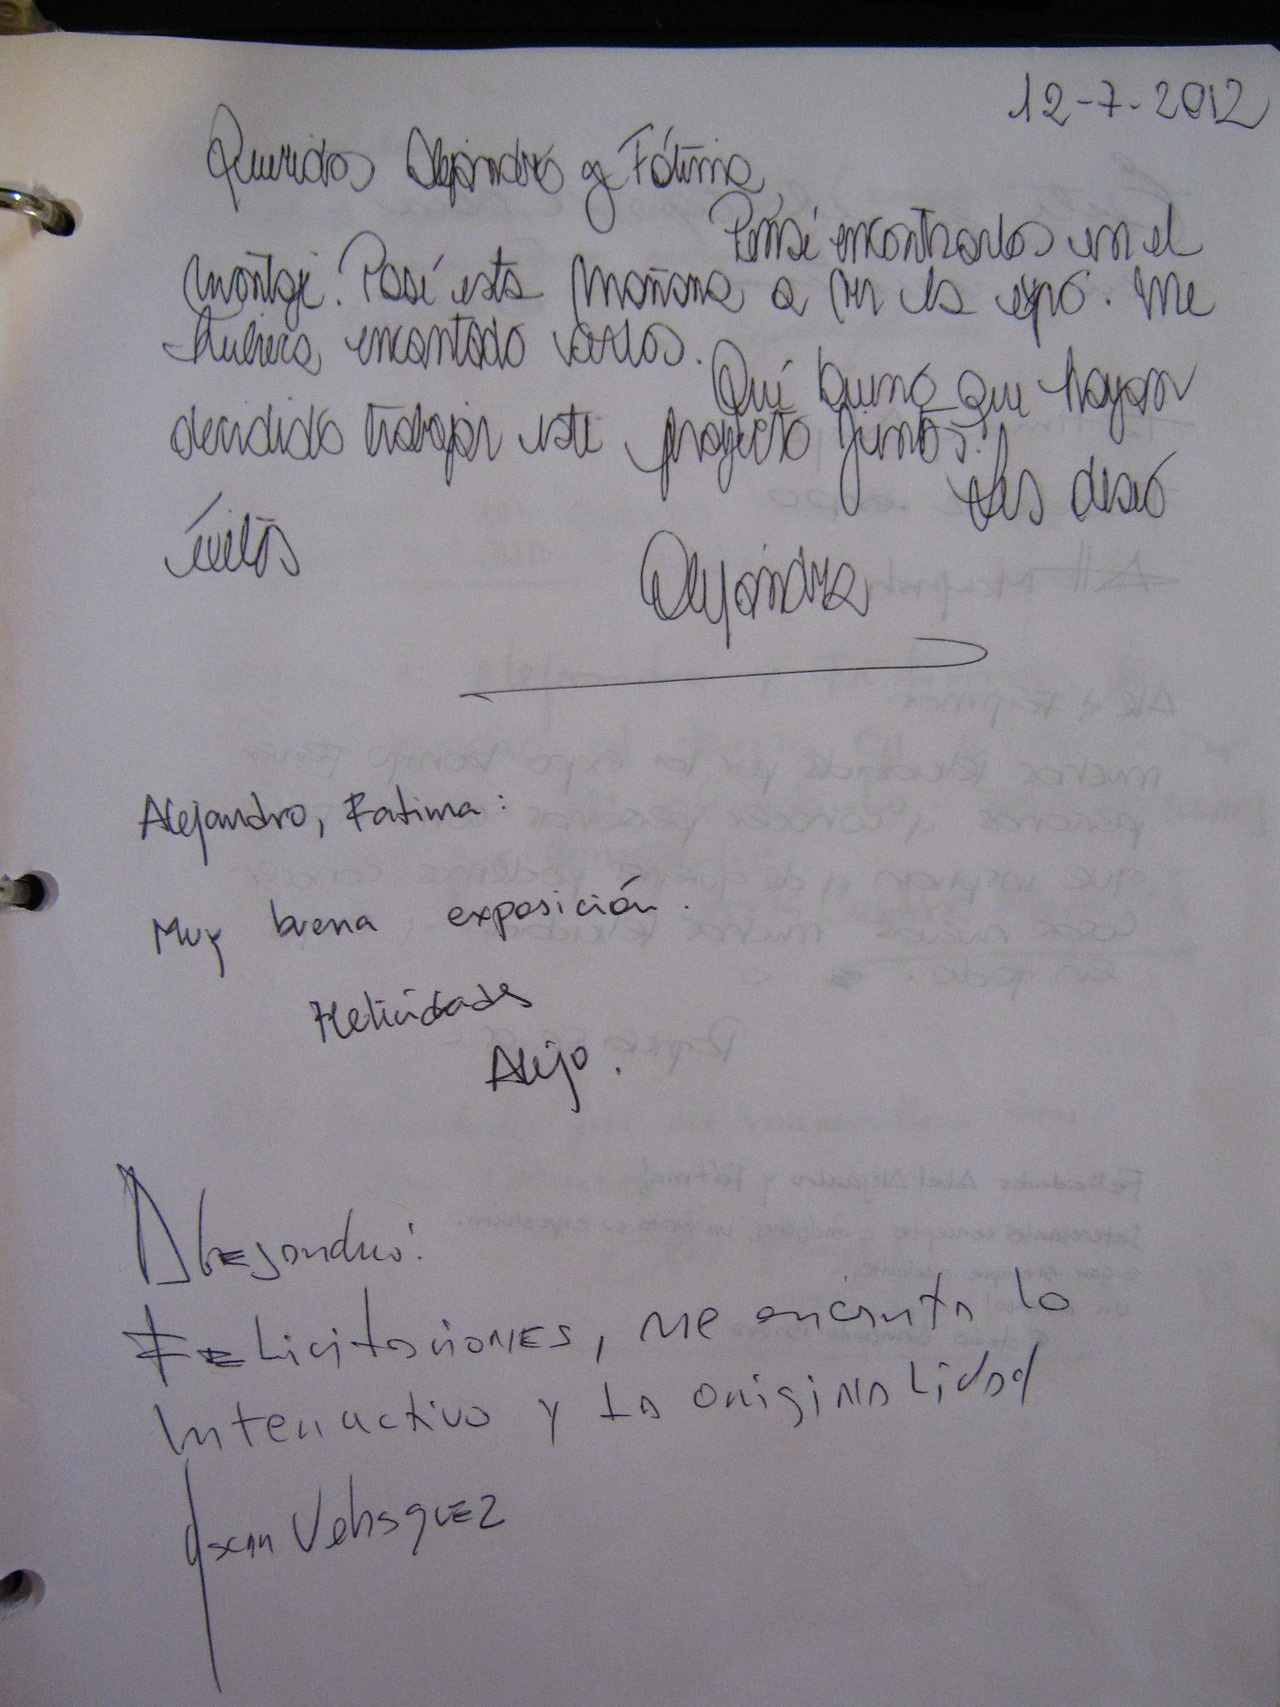 12-7-2012
Queridos Alejandro y Fátima,
Pensé encontrarlos en el
montaje. Pasé esta mañana a ver la expo. Me
hubiera encantado verlos.
Qué bueno que hayan
decidido trabajar este proyecto juntos!
Les deseo
éxitos
Alejandra
Alejandro, Fatima:
Muy buena exposición.
Felicidades
Alejo.
Alejandro:
Felicitaciones, me encanta lo
interactivo y la originalidad
Oscar Velasquez